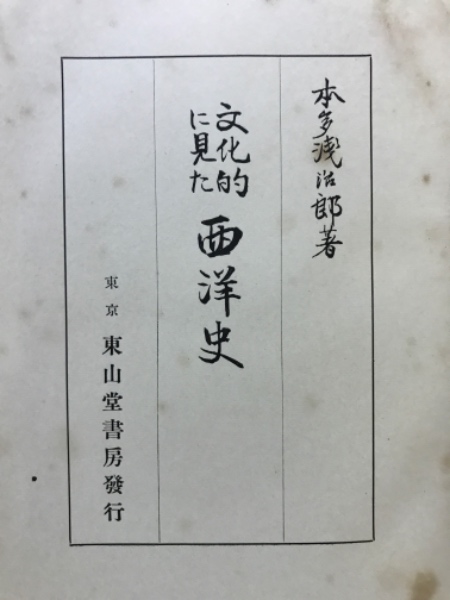 本多浅治郎著
文化的
に見た
西洋史
東京 東山堂書房發行